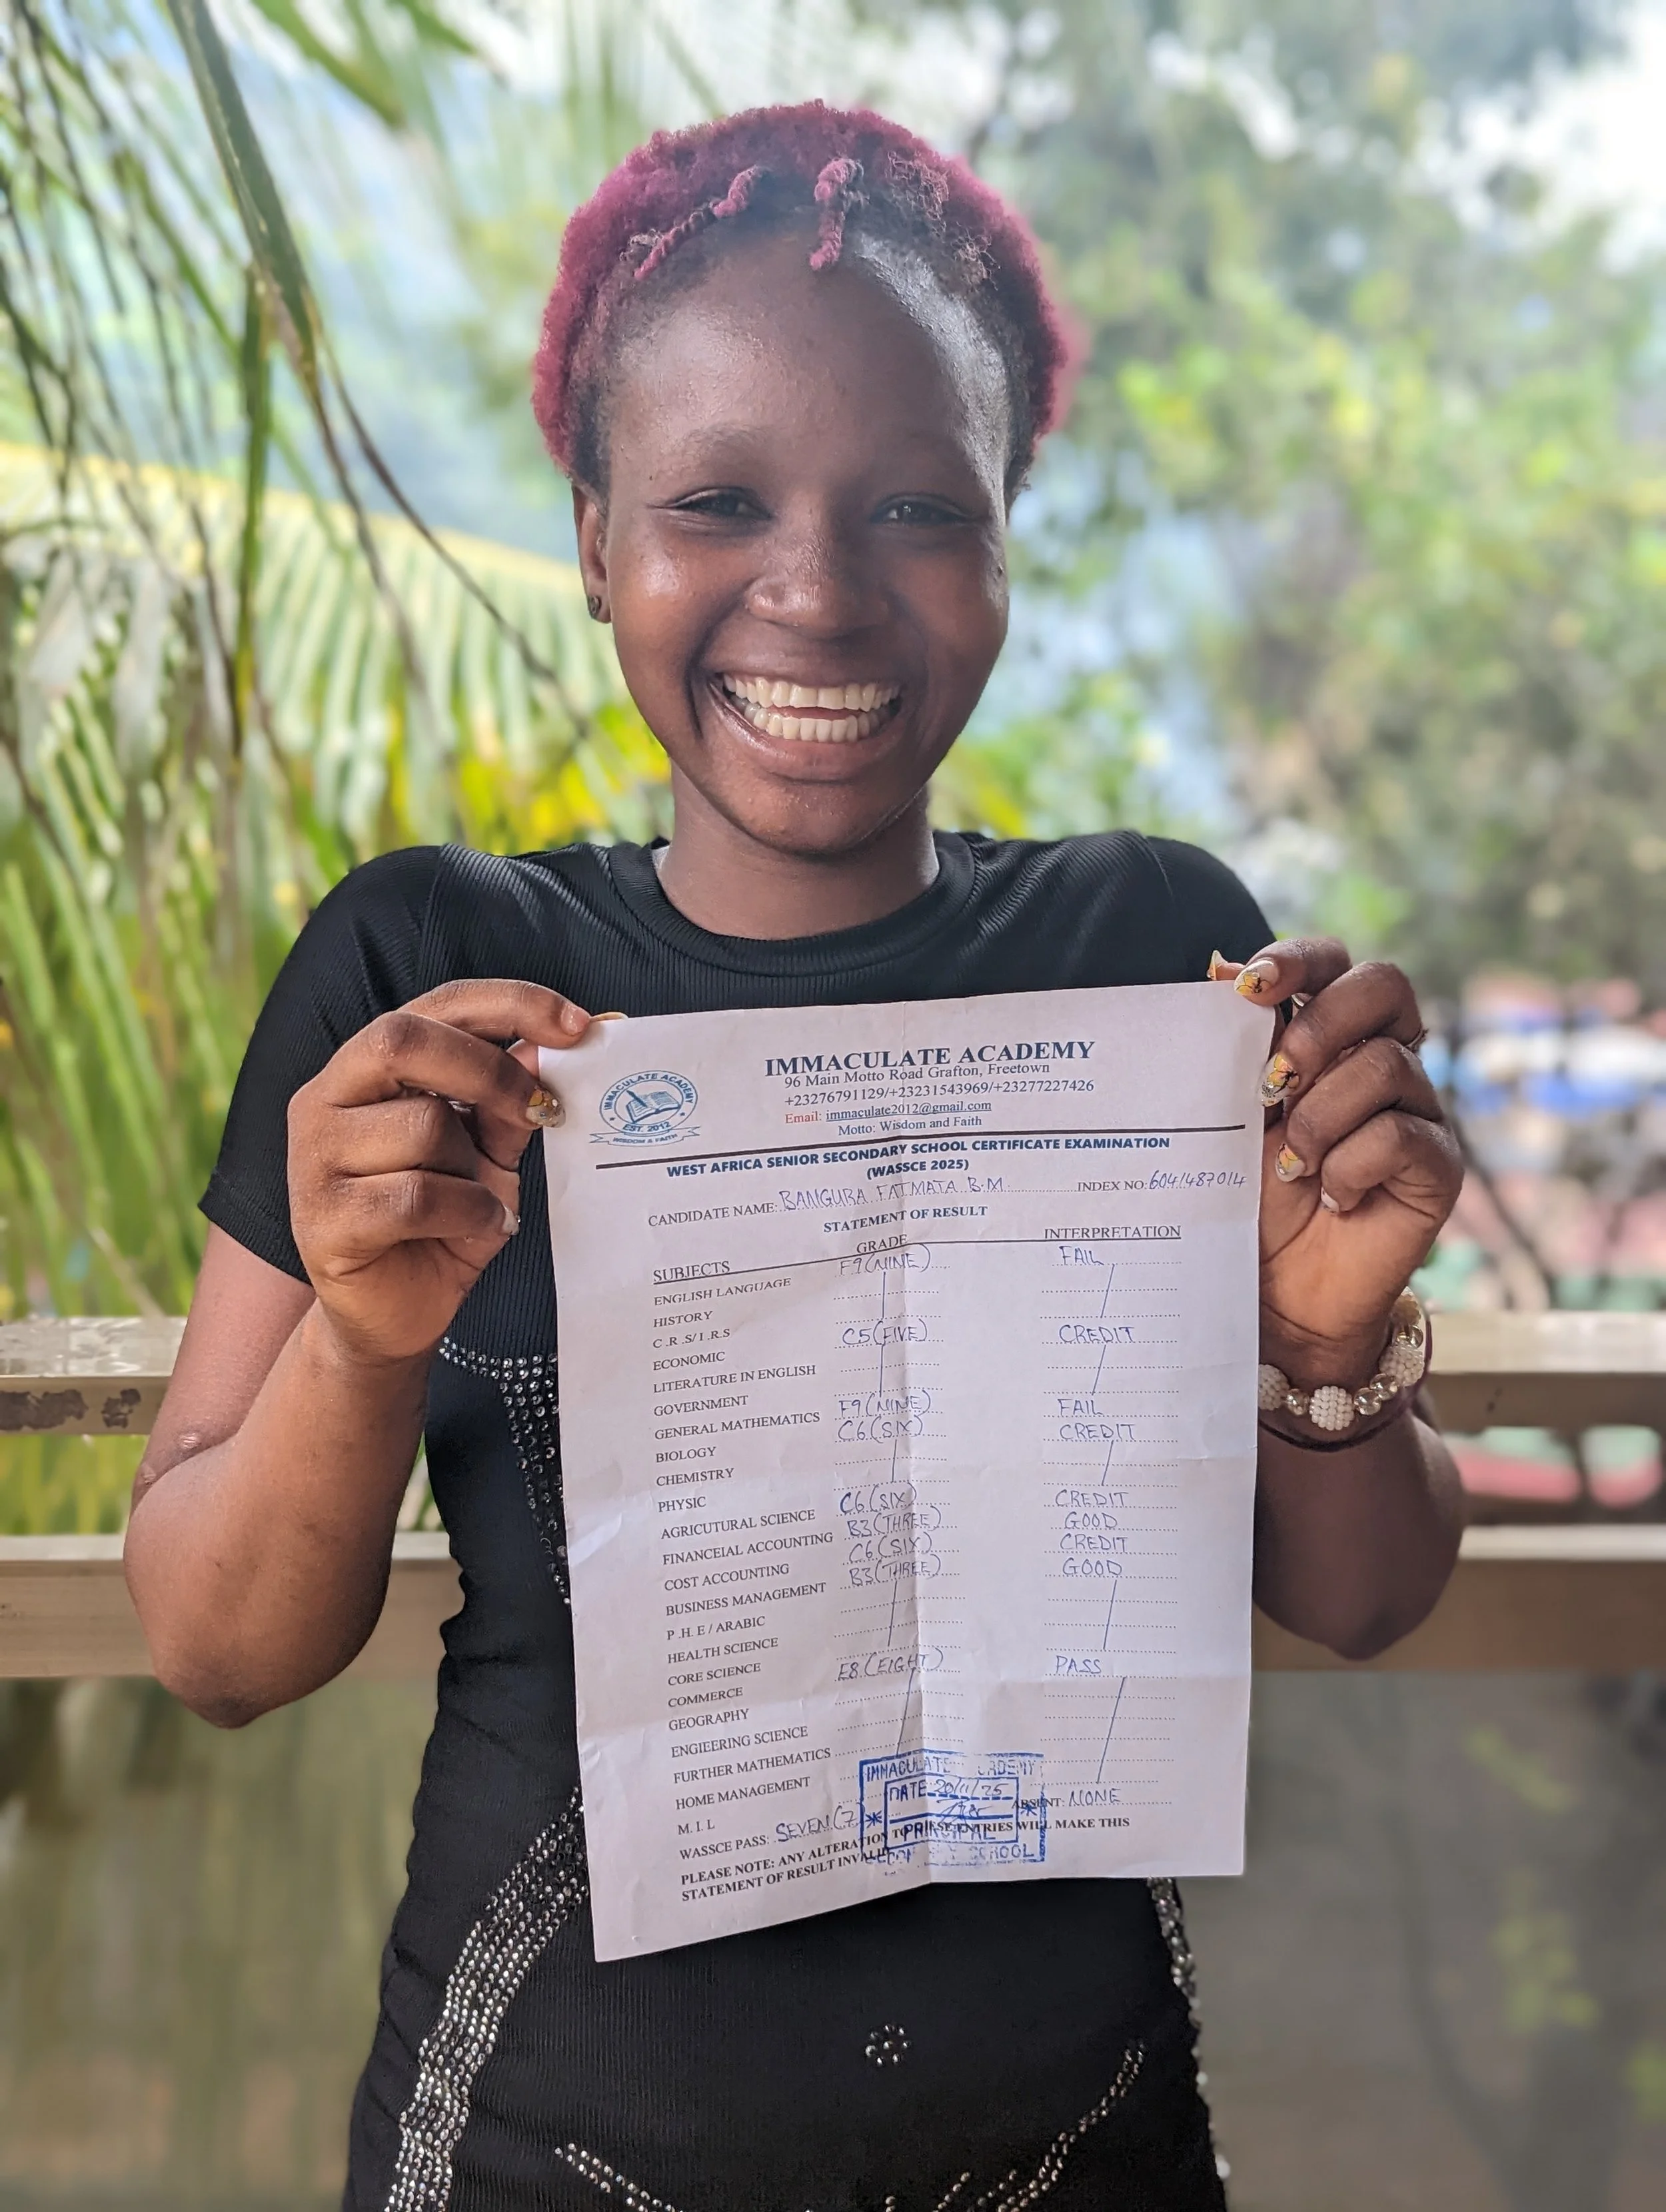 IMMACULATE ACADEMY
96 Main Motto Road Grafton, Freetown
+23276791129/+23231543969/+23277227426
Email: immaculate2012@gmail.com
Motto: Wisdom and Faith
IMMACULATE ACADEMY
EST. 2012
WISDOM & FAITH
WEST AFRICA SENIOR SECONDARY SCHOOL CERTIFICATE EXAMINATION
(WASSCE 2025)
CANDIDATE NAME: BANGURA FATMATA B.M. INDEX NO: 6041487014
STATEMENT OF RESULT
SUBJECTS GRADE INTERPRETATION
ENGLISH LANGUAGE F9 (NINE) FAIL
HISTORY
C.R.S/I.R.S
ECONOMIC C5 (FIVE) CREDIT
LITERATURE IN ENGLISH
GOVERNMENT
GENERAL MATHEMATICS F9 (NINE) FAIL
BIOLOGY C6 (SIX) CREDIT
CHEMISTRY
PHYSIC
AGRICUTURAL SCIENCE C6 (SIX) CREDIT
FINANCEIAL ACCOUNTING B3 (THREE) GOOD
COST ACCOUNTING C6 (SIX) CREDIT
BUSINESS MANAGEMENT B3 (THREE) GOOD
P.H.E / ARABIC
HEALTH SCIENCE
CORE SCIENCE
COMMERCE E8 (EIGHT) PASS
GEOGRAPHY
ENGIEERING SCIENCE
FURTHER MATHEMATICS
HOME MANAGEMENT
M.I.L
WASSCE PASS: SEVEN (7 ABSENT: NONE
PLEASE NOTE: ANY ALTERATION TO THESE ENTRIES WILL MAKE THIS
STATEMENT OF RESULT INVALID
IMMACULATE ACADEMY
DATE 20/11/25
PRINCIPAL
SCHOOL